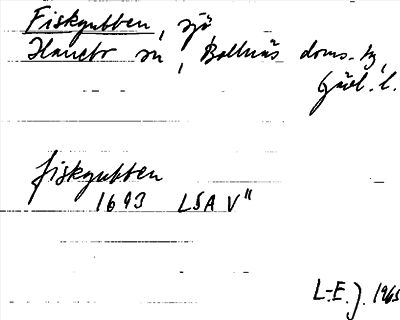 Fiskgubben, sjö,
Hanebo sn, Bollnäs doms. tg,
Gävl. l.
fiskgubben
1693 LSA V"
L-E. J. 1963